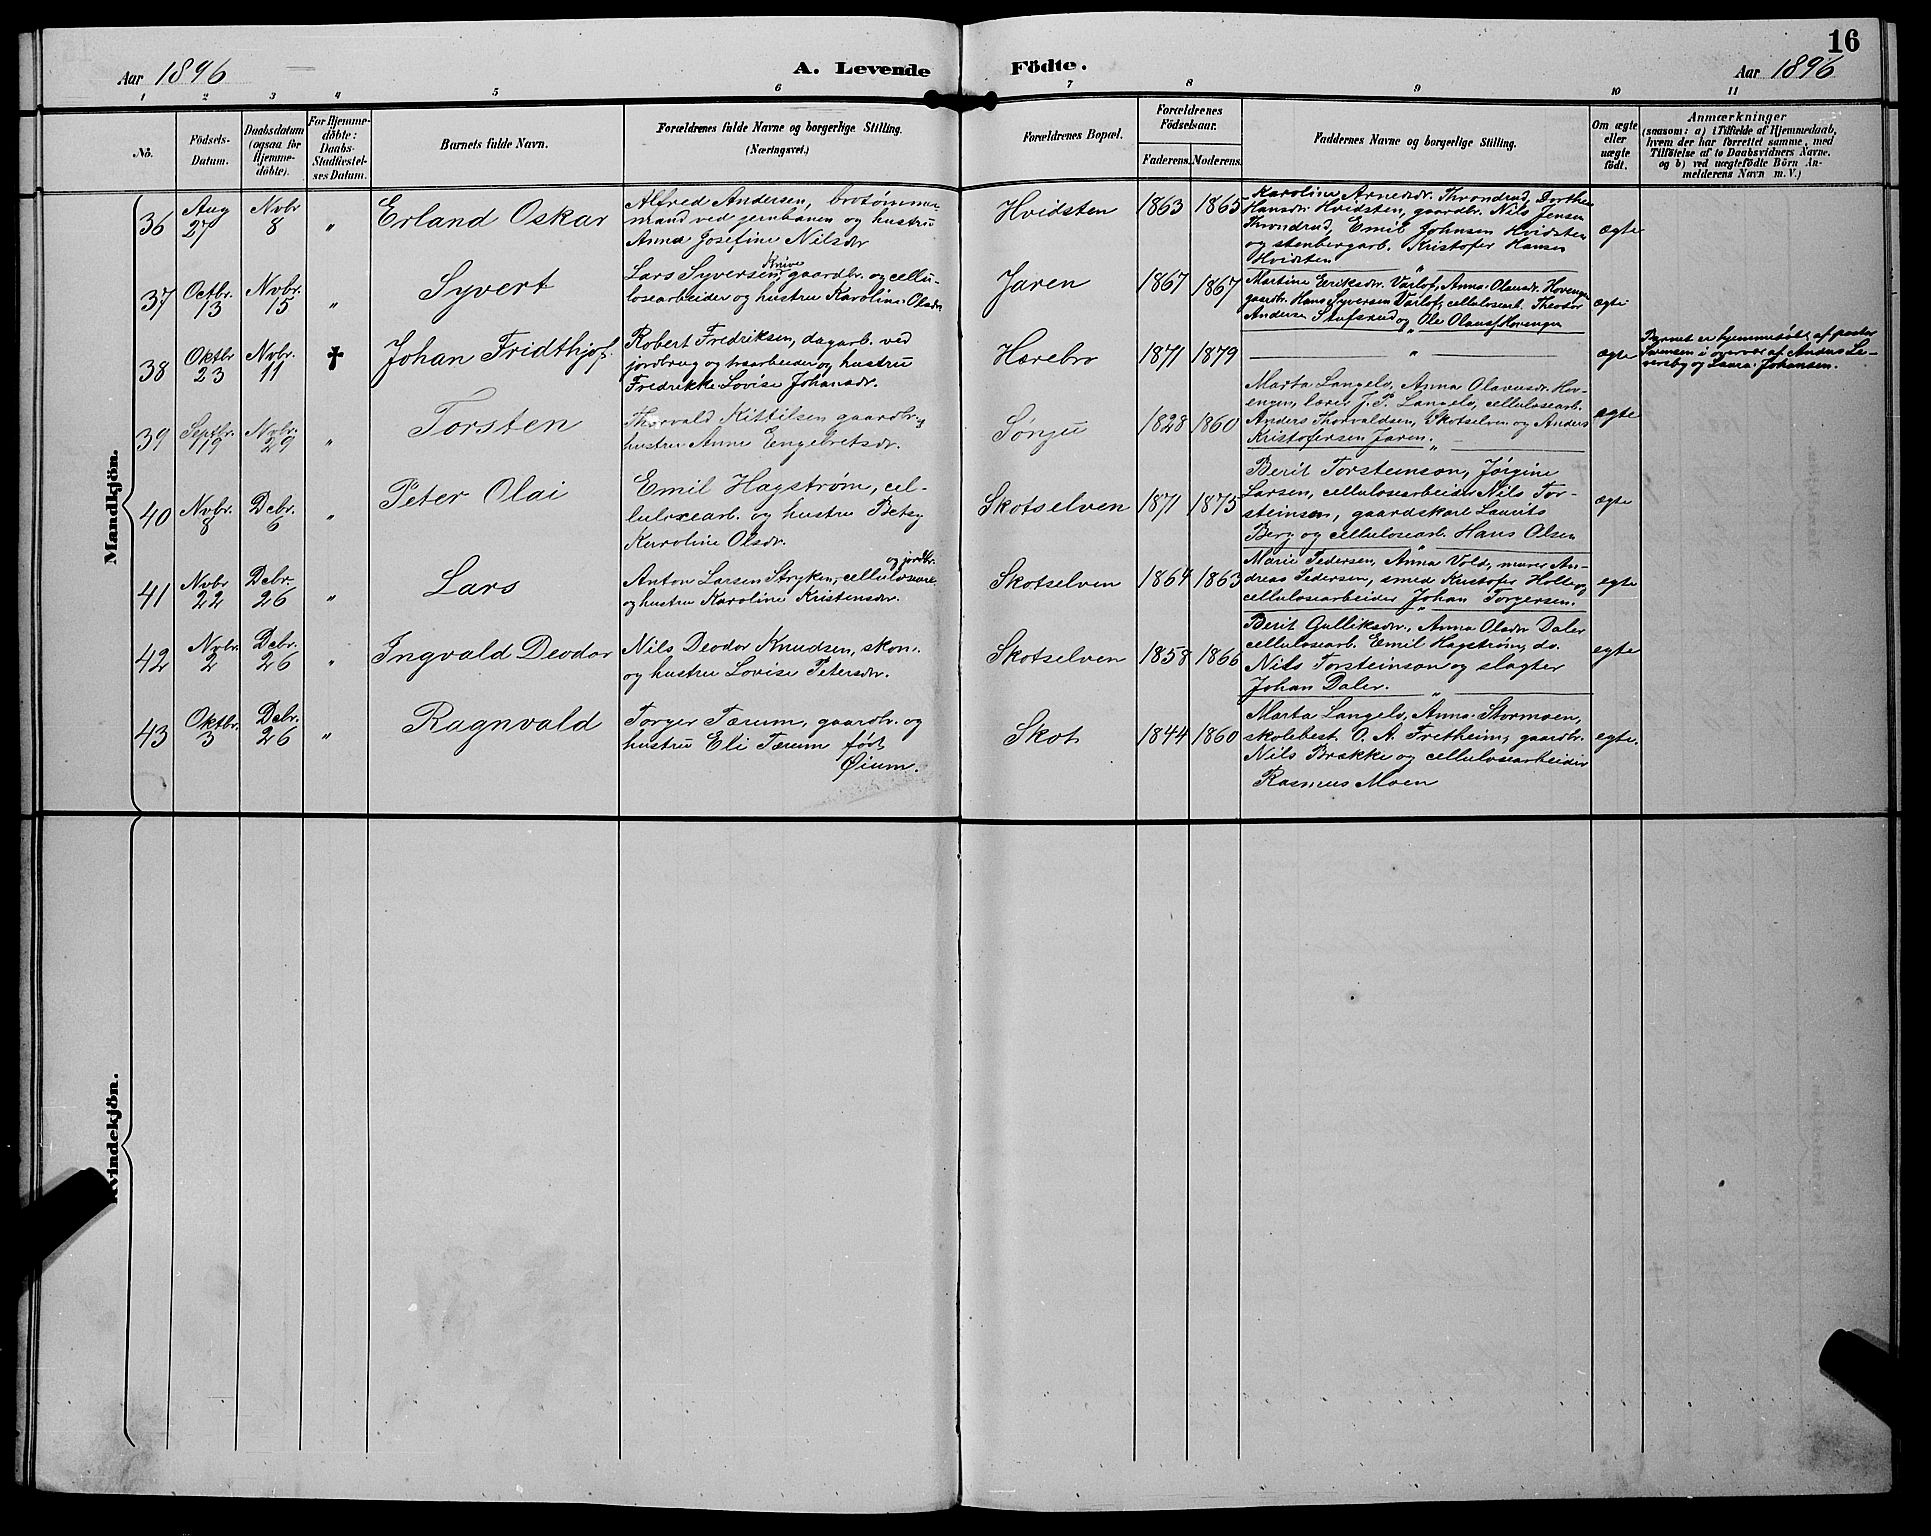 16
Aar 1896
A. Levende Födte.
Aar 1896
1 2 3 4 5 6 7 8 9 10 11
No.
Födsels-
Datum.
Daabsdatum
(ogsaa for
Hjemme-
døbte).
For Hjemme-
døbte:
Daabs-
Stadfæstel-
ses Datum.
Barnets fulde Navn.
Forældrenes fulde Navne og borgerlige Stilling.
(Næringsvei.)
Forældrenes Bopæl.
Forældrenes
Födselsaar.
Faderens. Moderens.
Faddernes Navne og borgerlige Stilling.
Om ægte
eller
uægte
födt.
Anmærkninger
(saasom: a) i Tilfælde af Hjemmedaab,
hvem der har forrettet samme, med
Tilföielse af to Daabsvidners Navne,
og b) ved uægtefödte Börn An-
melderens Navn m. V.)
Mandkjön.
36 Aug 27 Nvbr 8 "
Erland Oskar
Alfred Andersen, brotømme-
mand ved jernbanen og hustru
Anna Josefine Nilsdr
Hvidsten 1863 1865
Karoline Arnedr. Throndrud, Dorthea
Hansdr. Hvidsten, gaardbr. Nils Jensen
Throndrud, Emil Johnsen Hvidsten
og stenbergarb. Kristofer Hansen
Hvidsten
ægte
37 Octbr. 13 Nvbr. 15 "
Syvert
Knive
Lars Syversen, gaardbr. og cellu-
losearbeider og hustru Karoline Olsdr
Jaren 1867 1867
Martine Eriksdr. Varlof, Anna Olausdr. Hovengen
gaardbr. Hans Syversen Varlof, cellulosearb. Theodor
Andersen Stufsrud og Ole Olausf. Hovengen
ægte
38 Oktbr 23 Nvbr. 11 †
Johan Fridthjof
Robert Fredriksen, dagarb. ved
jordbrug og træarbeide og hustru
Fredrikke Lovise Johansdr.
Hærebro 1871 1879
"
ægte
Barnet er hjemmedøbt af pastor
Svensen i overvær af Anders Le-
versby og Laura Johansen.
39 Septbr. 19 Nvbr. 29 "
Torsten
Thorvald Kittilsen gaardbr. og
hustru Anne Engebretsdr.
Sønju 1828 1860
Marta Langelo, Anna Olavusdr. Hov-
engen, lærer J. P. Langelo, cellulosearb.
Anders Thorvaldsen, Skotselven og Anders
Kristofersen Jaren.
ægte
40 Nvbr. 8 Dcbr. 6 "
Peter Olai
Emil Hagstrøm, cel-
lulosearb. og hustru Betsy
Karoline Olsdr.
Skotselven 1871 1875
Berit Torsteinson, Jørgine
Larsen, cellulosearbeider Nils Tor-
steinsen, gaardskarl Laurits
Berg og cellulosearb. Hans Olsen
ægte
41 Nvbr 22 Dcbr. 26 "
Lars
og jordbr.
Anton Larsen Stryken, cellulosearb.
og hustru Karoline Kristensdr.
Skotselven 1864 1863
Marie Pedersen, Anna Vold, murer An-
dreas Pedersen, smed Kristofer Holle og
cellulosearbeider Johan Torgersen.
egte
42 Nvbr. 2 Dcbr. 26 "
Ingvald Deodor
Nils Deodor Knudsen, skom.
og hustru Lovise Petersdr.
Skotselven 1858 1866
Berit Gulliksdr., Anna Olsdr Daler
cellulosearb. Emil Hagstrøm, do.
Nils Torsteinson og slagter
Johan Daler.
egte
43 Oktbr. 3 Dcbr. 26 "
Ragnvald
Torger Tærum, gaardbr. og
hustru Eli Tærum født
Øium.
Skot 1844 1860
Marta Langelo, Anna Stormoen,
skolebest. O. A. Fretheim, gaardbr.
Nils Brække og cellulosearbeider
Rasmus Moen
egte.
Kvindekjön.